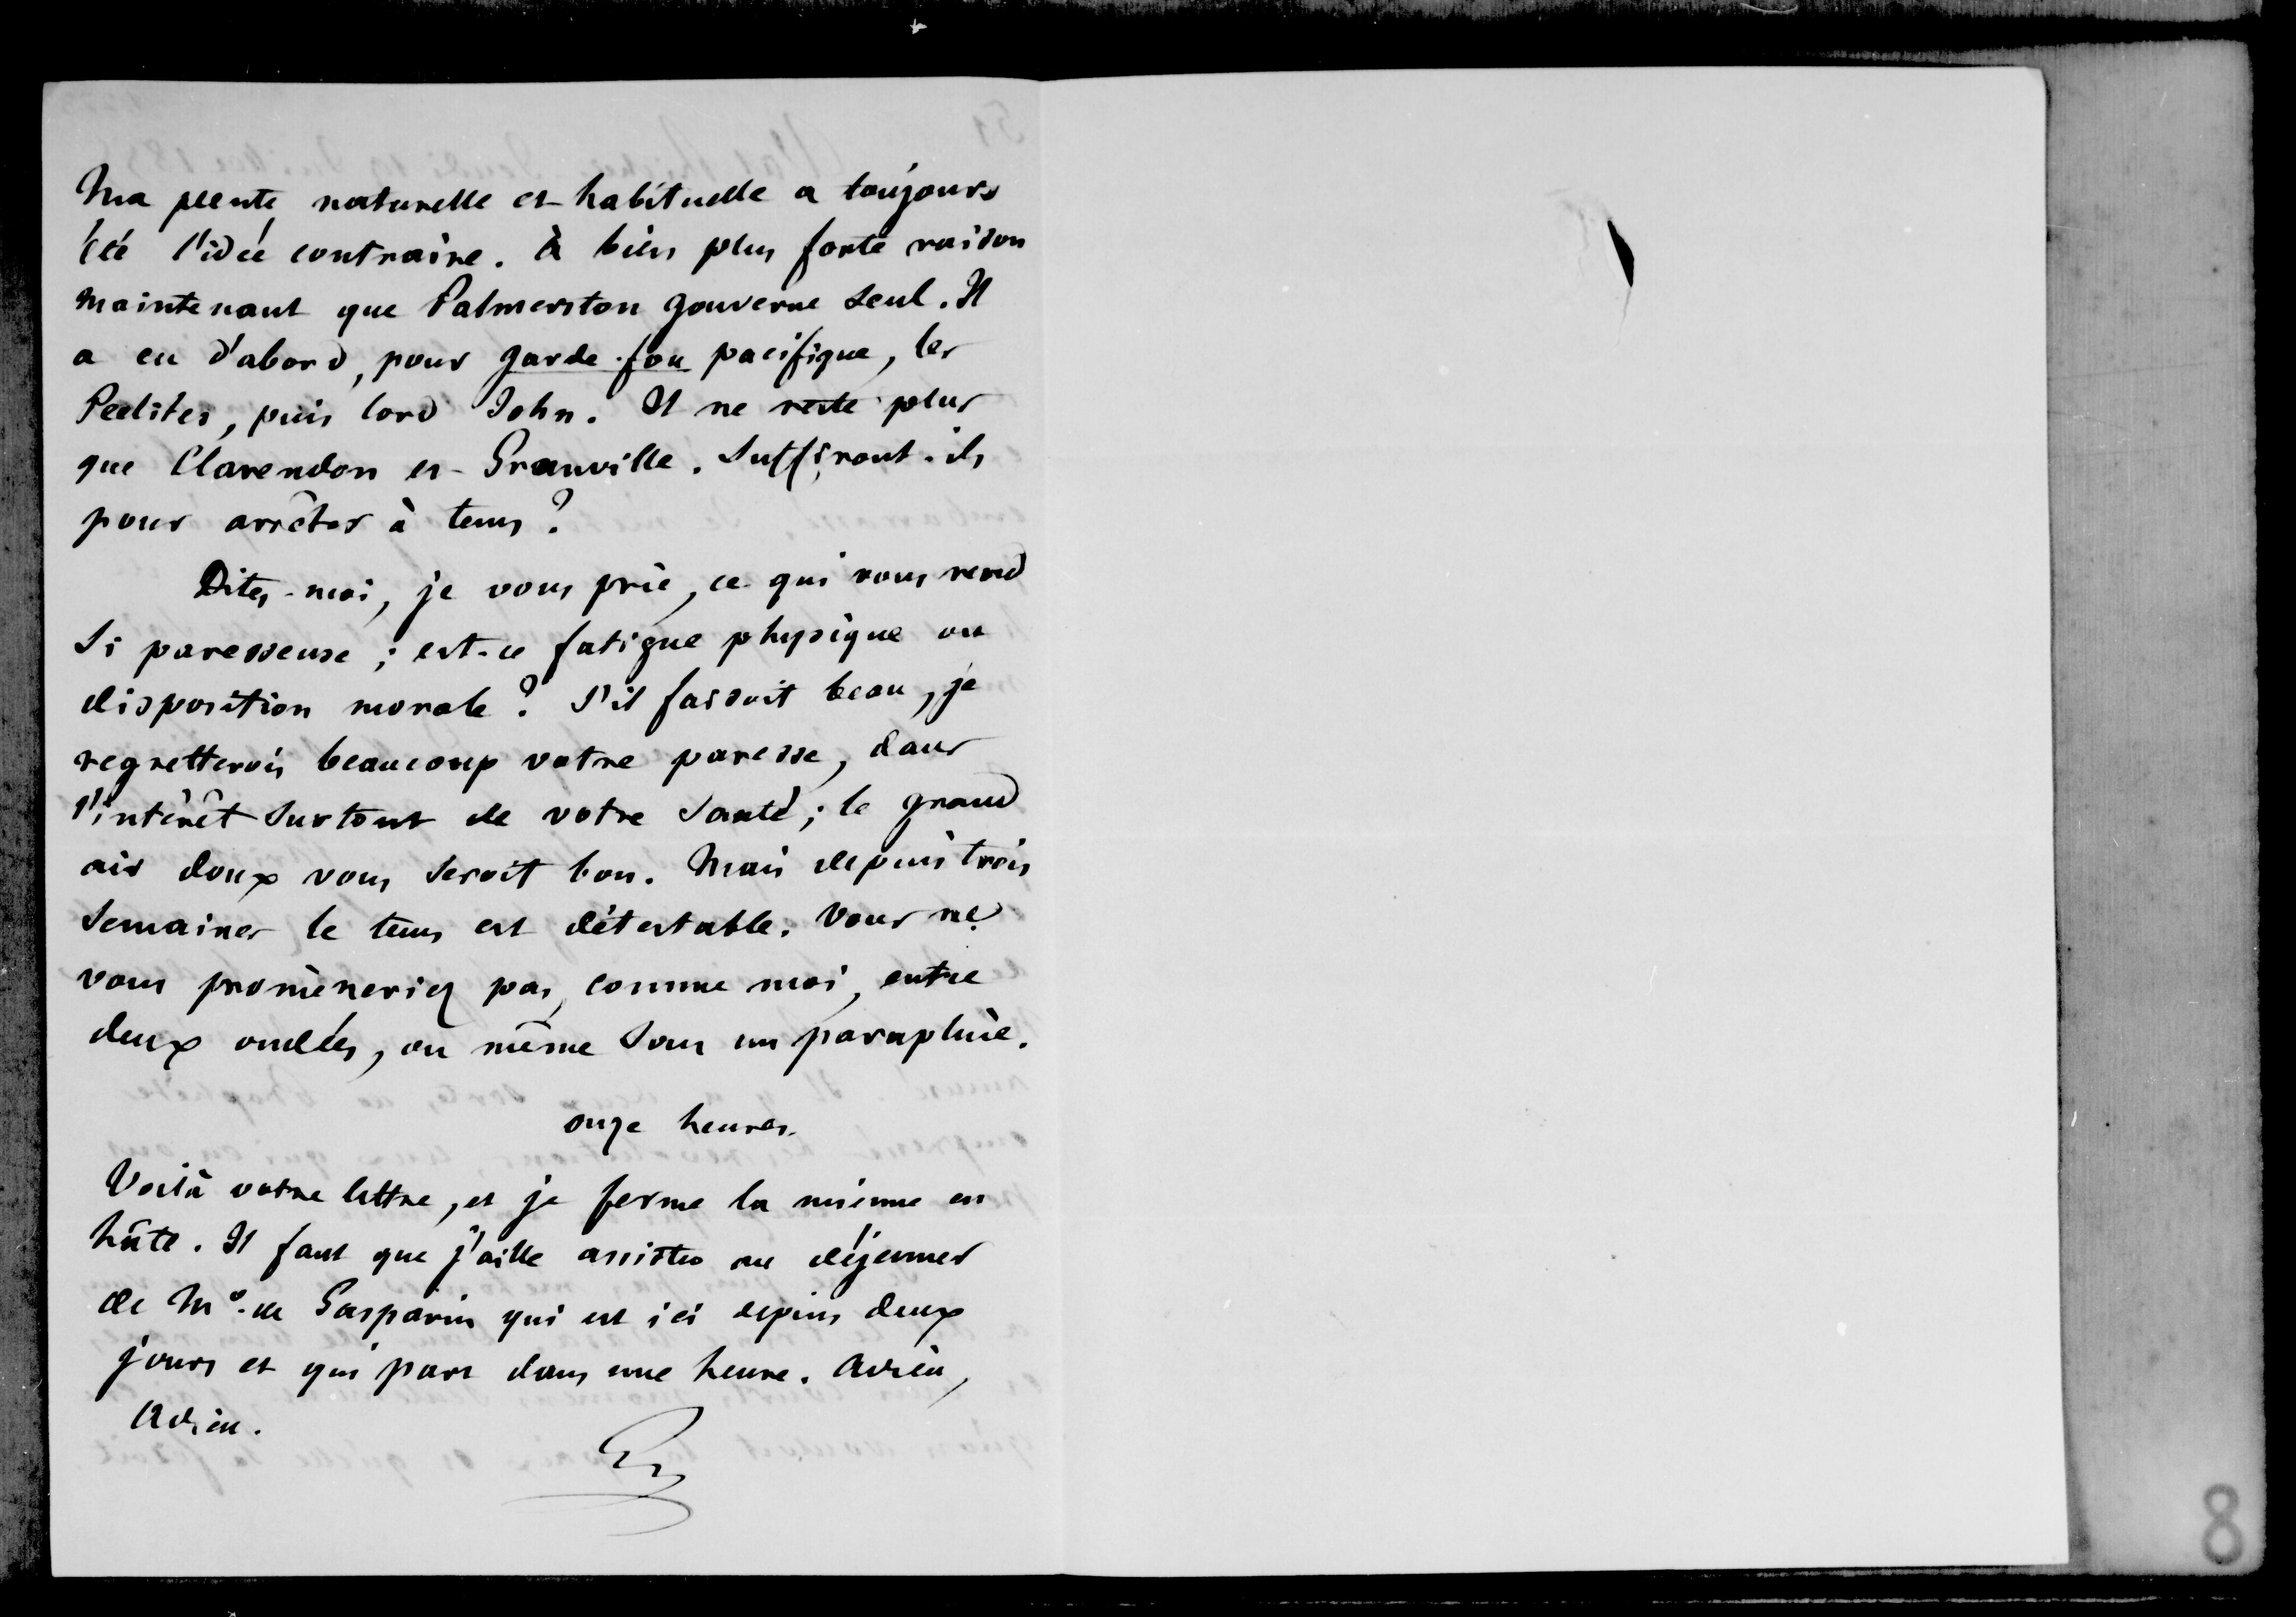 Ma pente naturelle et habituelle a toujours
été l'idée contraire. à bien plus forte raison
maintenant que Palmerston gouverne seul. Il
a eu d'abord, pour garde-fou pacifique, les
Peelites, puis lord John. Il ne reste plus
que Clarendon et Granville. Suffiront-ils
pour arrêter à tems ?
Dites-moi, je vous prie, ce qui vous rend
si paresseuse ; est-ce fatigue physique ou
disposition morale ? S'il faisoit beau, je
regretterois beaucoup votre paresse, dans
l'intérêt surtout de votre santé ; le grand
air doux vous seroit bon. Mais depuis trois
semaines le tems est détestable. Vous ne
vous promèneriez pas, comme moi, entre
deux ondées, ou même sous un parapluie.
onze heures.
Voilà votre lettre, et je ferme la mienne en
hâte. Il faut que j'aille assister au déjeuner
de Me. de Gasparin qui est ici depuis deux
jours et qui part dans une heure. Adieu,
Adieu.
8